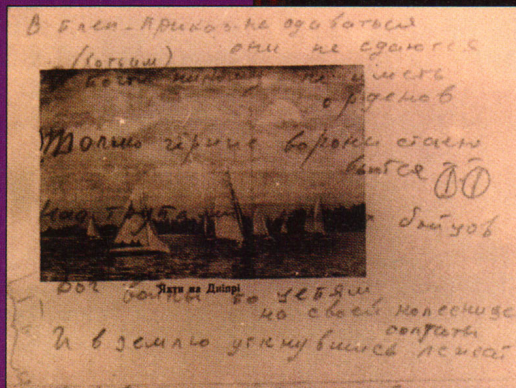 В плен - приказ - не сдаваться
они не сдаются
(хотим)
никому не иметь
орденов
Только чёрные вороны стаею
вьются
Над трупами бойцов
Яхти на Дніпрі
Бог войны по цепям
на своей колеснице
солдаты
И в землю уткнувшись лежат